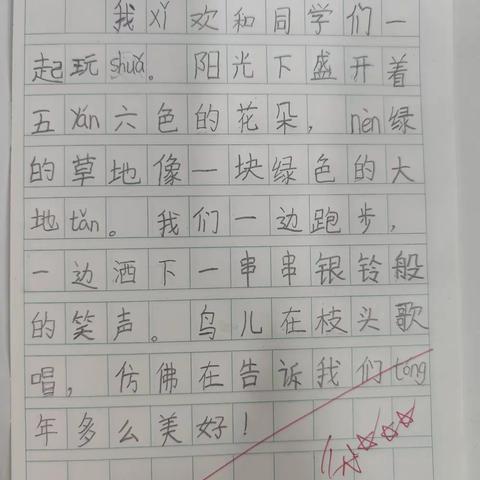 我xǐ欢和同学们一
起玩shuǎ。阳光下盛开着
五yán六色的花朵，nèn绿
的草地像一块绿色的大
地tǎn。我们一边跑步，
一边洒下一串串银铃般
的笑声。鸟儿在枝头歌
唱，仿佛在告诉我们tóng
年多么美好！